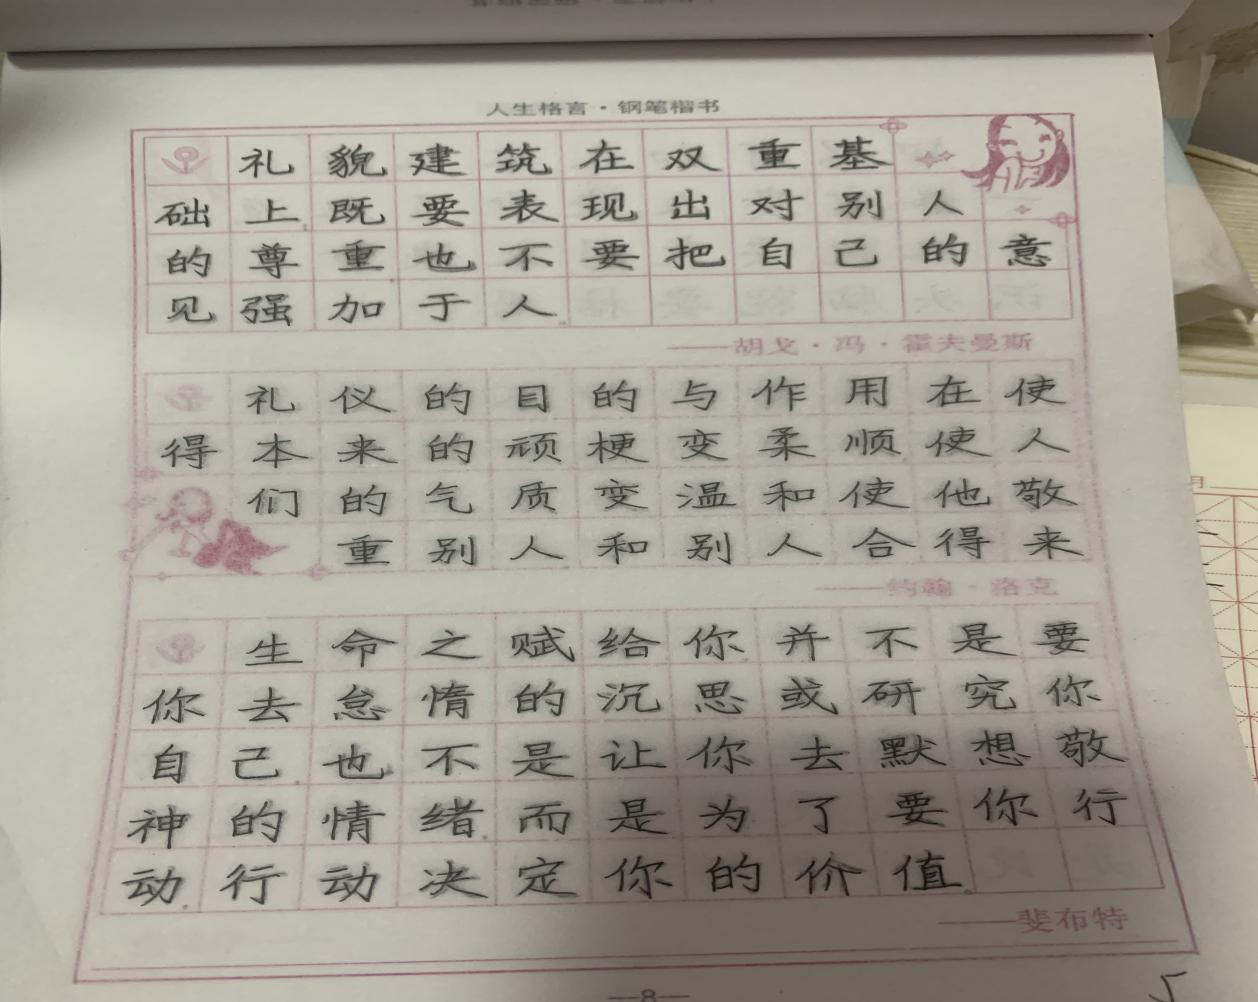 人生格言·钢笔楷书
礼貌建筑在双重基
础上既要表现出对别人
的尊重也不要把自己的意
见强加于人
——胡戈·冯·霍夫曼斯
礼仪的目的与作用在使
得本来的顽梗变柔顺使人
们的气质变温和使他敬
重别人和别人合得来
——约翰·洛克
生命之赋给你并不是要
你去怠惰的沉思或研究你
自己也不是让你去默想敬
神的情绪而是为了要你行
动行动决定你的价值
——斐布特
—8—